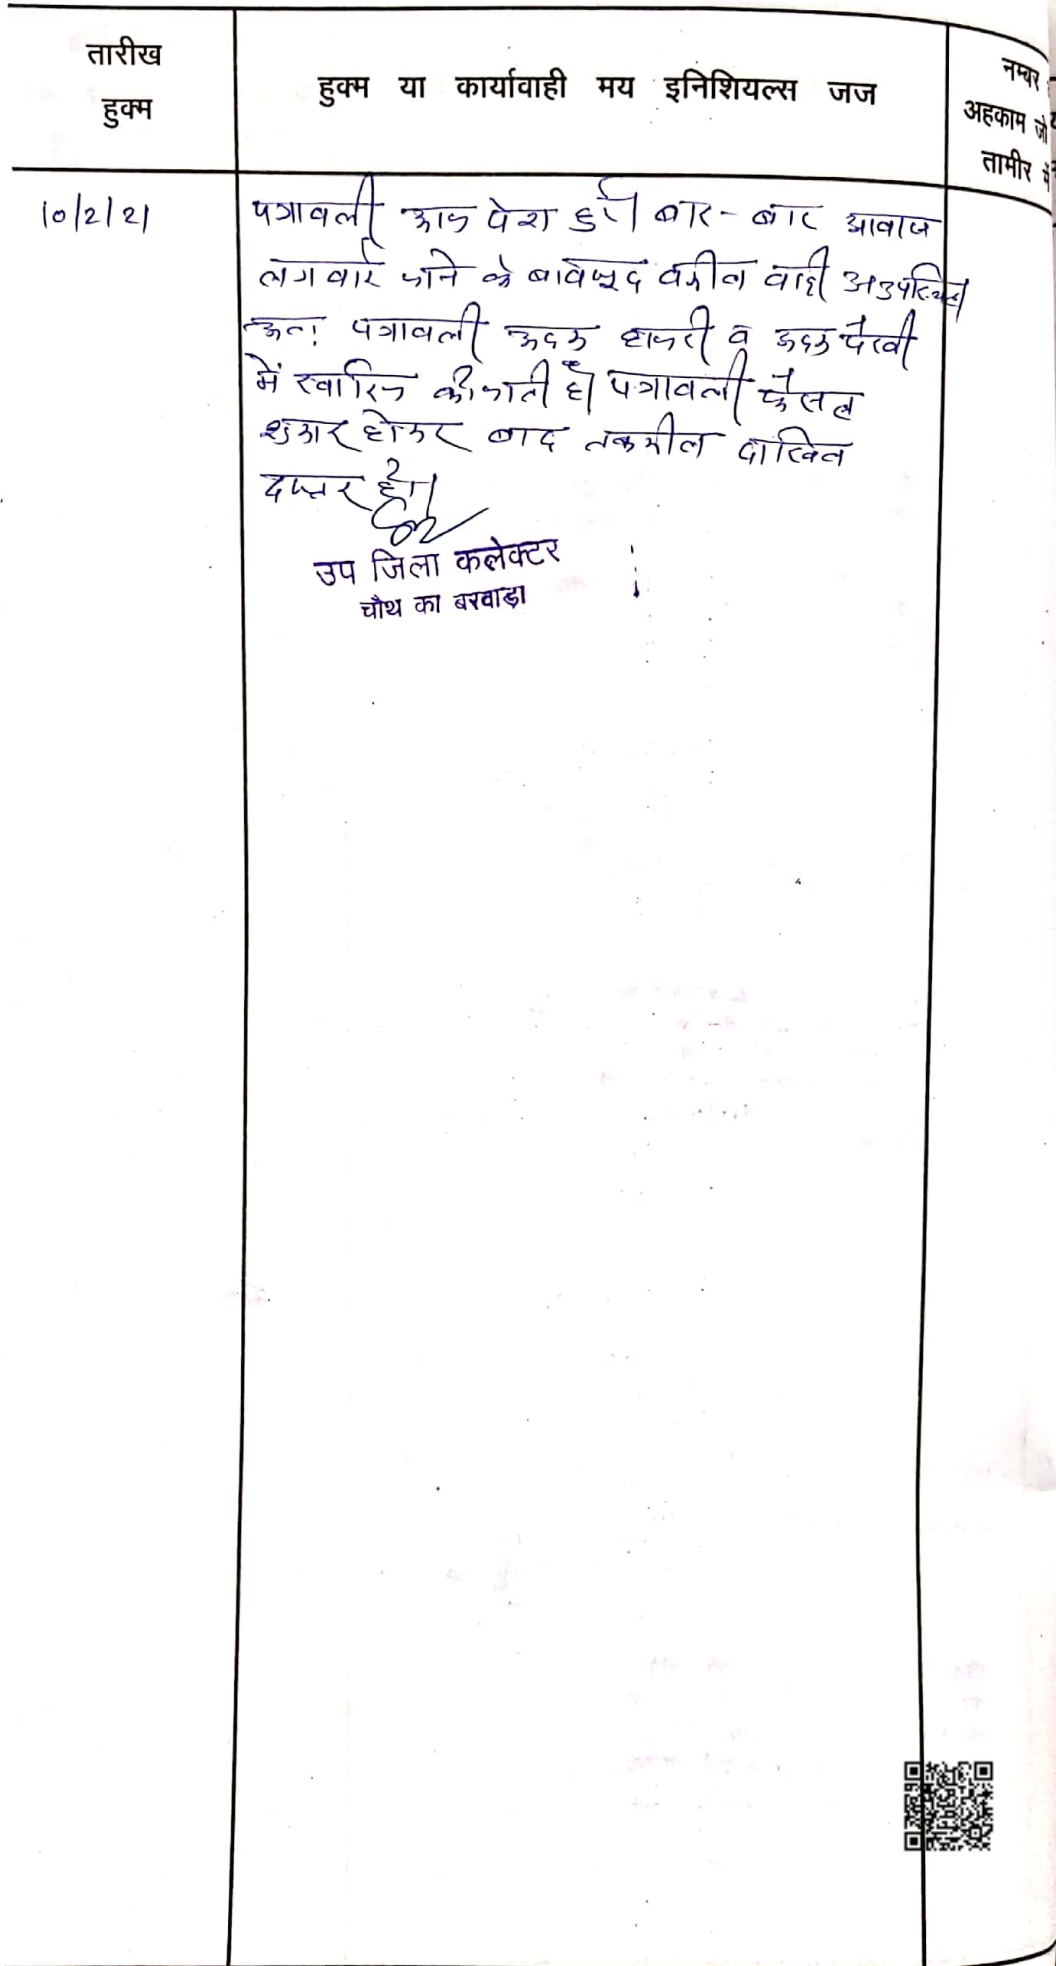 तारीख
हुक्म
हुक्म या कार्यावाही मय इनिशियल्स जज
नम्बर
अहकाम जो
तामीर में
10/2/21
पत्रावली आज पेश हुई। बार-बार आवाज
लगवाई जाने के बावजूद वकील वादी अनुपस्थित।
अतः पत्रावली अदम हाजरी व अदम पैरवी
में खारिज की जाती है। पत्रावली फैसल
शुमार होकर बाद तकमील दाखिल
दफ्तर हो।
उप जिला कलेक्टर
चौथ का बरवाड़ा